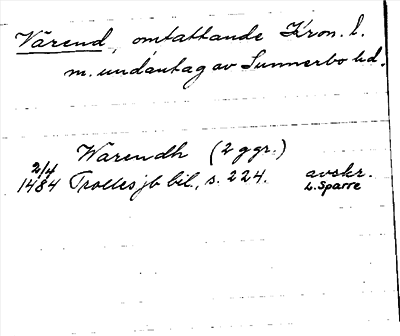 Värend, omfattande Kron. l.
m. undantag av Sunnerbo hd.
Warendh (2 ggr.)
2/4
1484 Trolles jb bil., s. 224. avskr.
L. Sparre